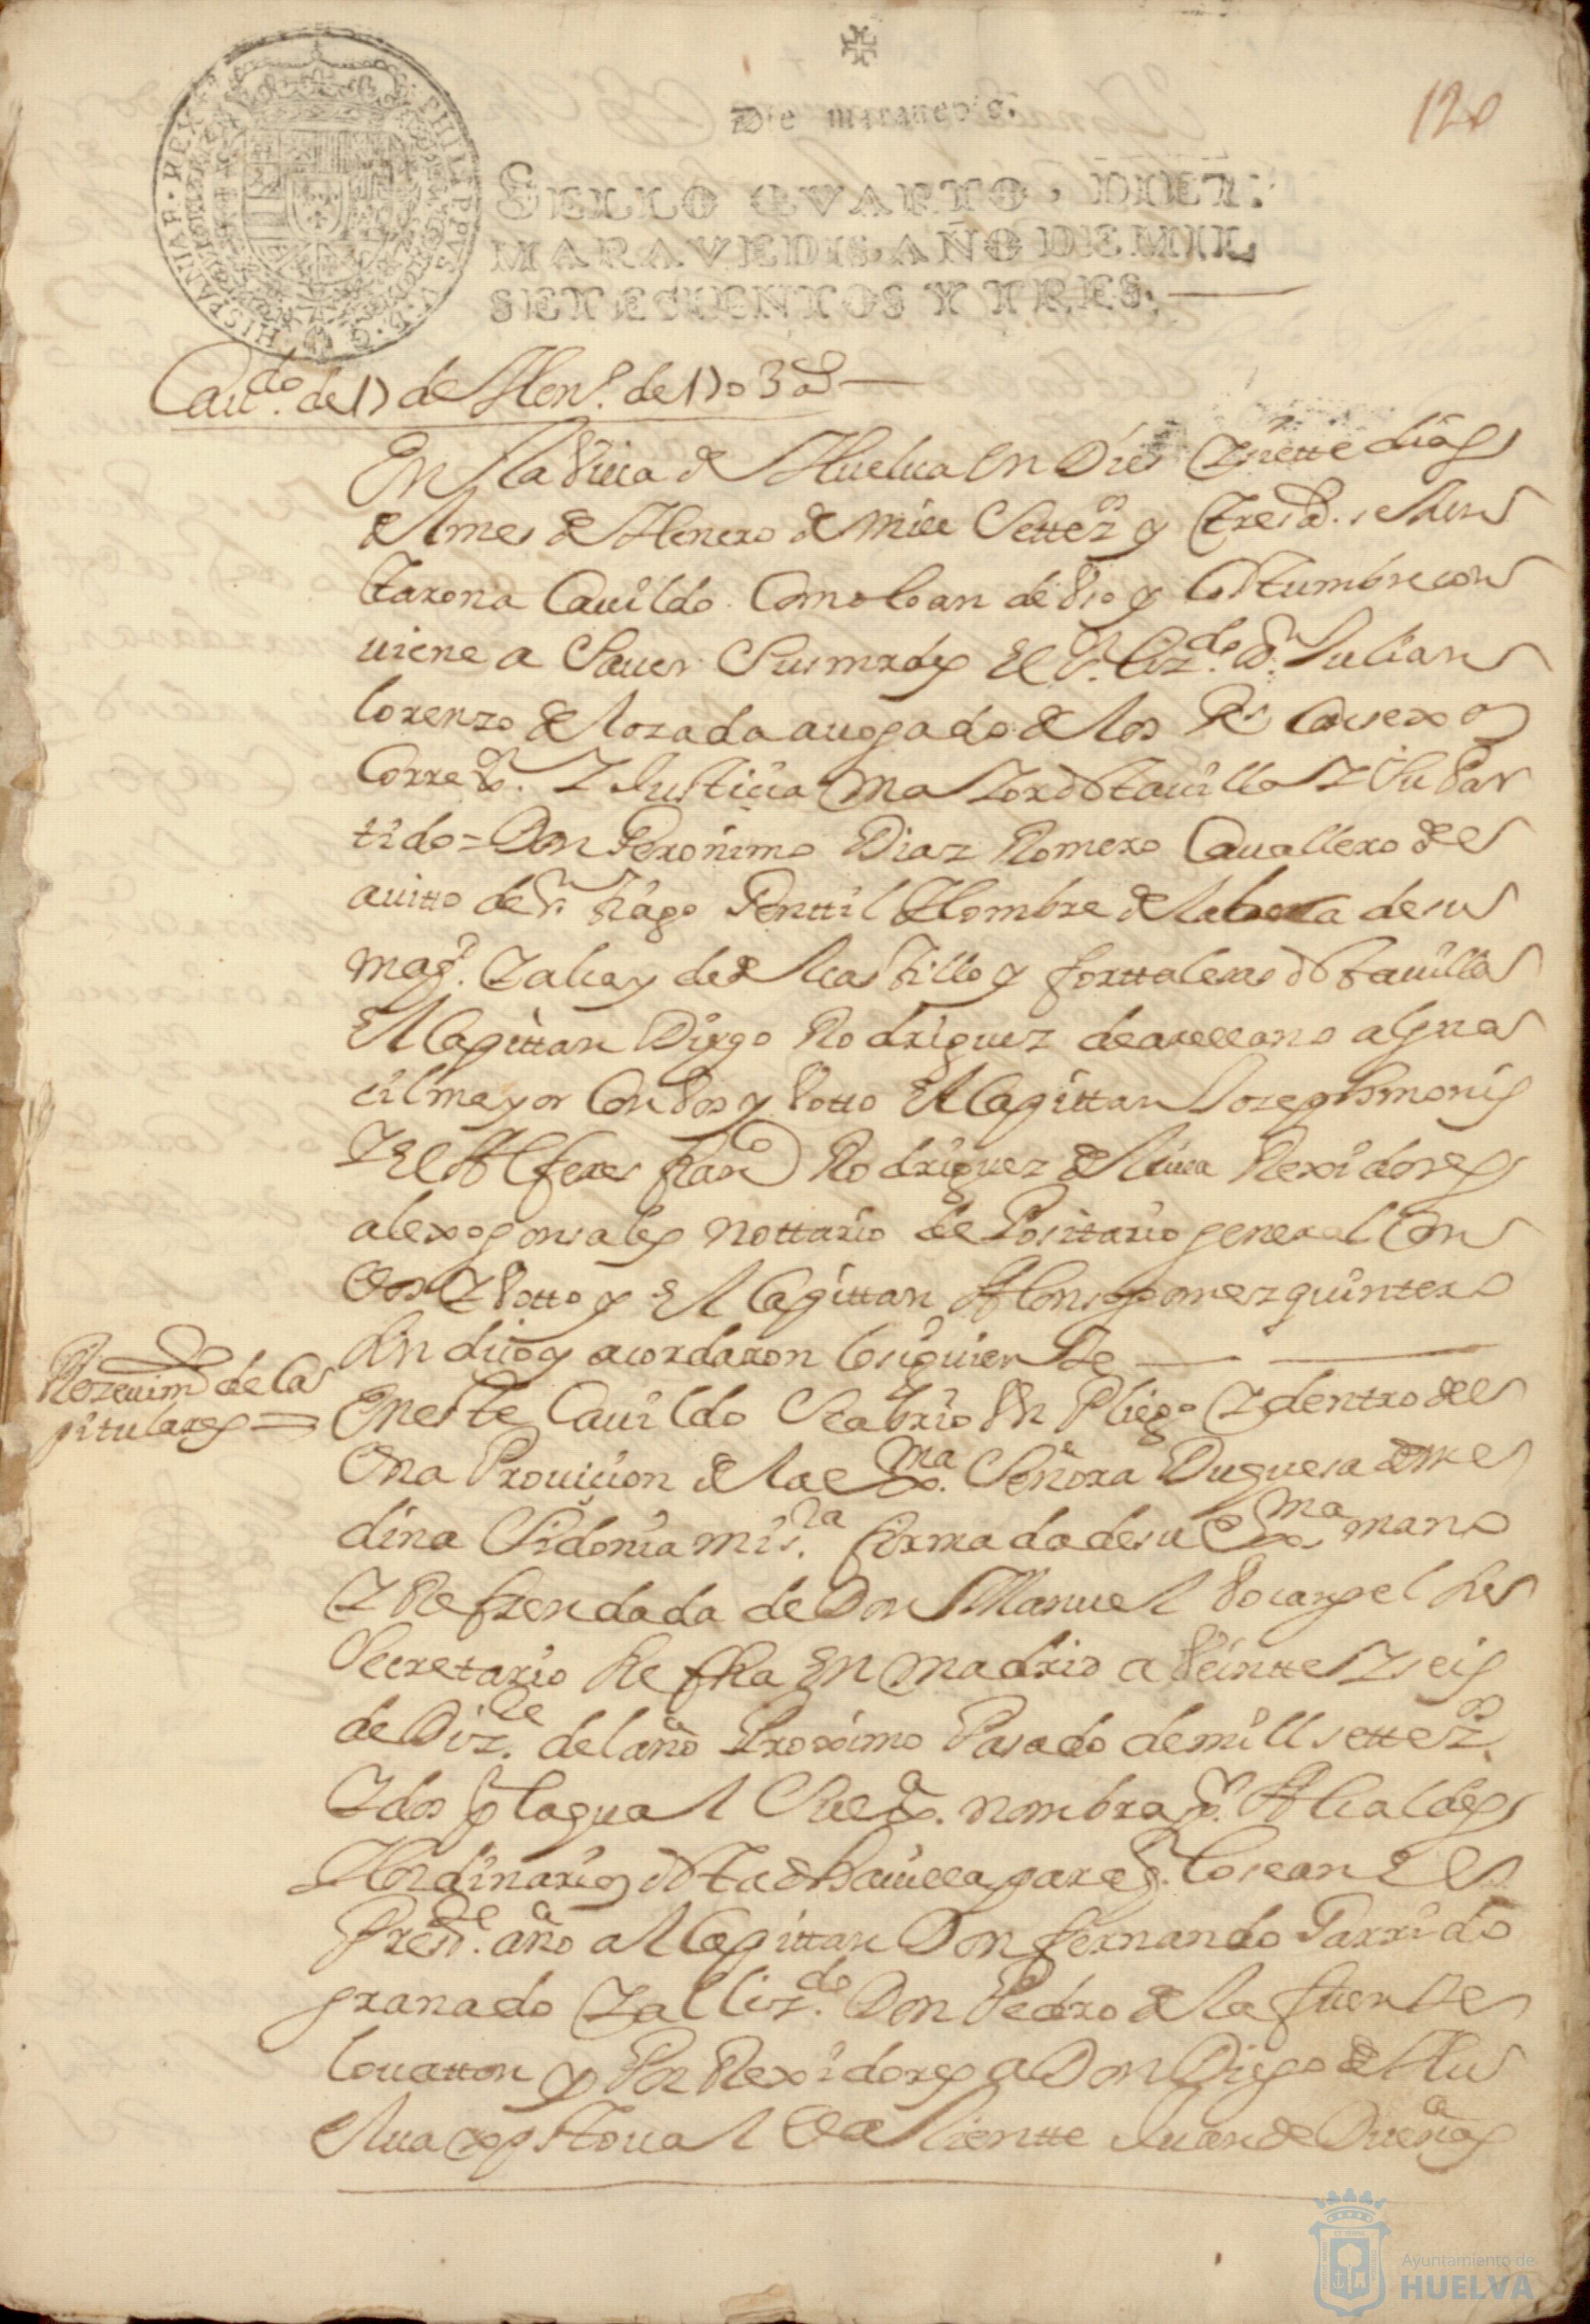 120
Diez maravedis.
SELLO QVARTO, DIEZ
MARAVEDIS, AÑO DE MIL
SETECIENTOS Y TRES.
PHILIPPVS V D G HISPANIAR REX
Cauᵈᵒ. de 17 de Henᵒ. de 1703 aˢ
En la Villa de Huelua en Dies Y siette dias
del mes de Henero de mill Settezᵒˢ y Tres aˢ. se Jun
taron a Cauildo Como lo an de Vso y Costumbre con
uiene a Sauer Sus mrdes El Sʳ. Lizᵈᵒ. Dⁿ. Julian
lorenzo de lozada auogado de los Rˢ Consexos
Correʳ. Y Justicia Mayor dstauilla Y Su Par
tido = Don Geronimo Diaz Romero Cauallero del
auitto de S. tiago Genttil Hombre de la boca de su
Magᵈ. Y alcayde del castillo y forttalesas dsta uilla
El Capittan Diego Rodriguez de arellano algua
cil mayor Con Vos y Votto El Capittan Joseph monis
Y El Alferes franᶜᵒ Rodriguez de Riuea Rexidores
alexo gonsales nottario de Posittario general Con
Vos Y Votto y El Capittan Alonso gomez quintero
Sindico y acordaron lo siguiente
Rezeuimᵗᵒ de Ca
pitulares =
En este Cauildo Se abrio Vn Pliego Y dentro del
Vna Prouicion de la exᵐᵃ. Señora Duquesa de me
dina Sidonia mi sʳᵃ. firmada de su exᵐᵃ mano
Y Refrendada de Don Manuel Vocangel Su
Secretario Su fha En Madrid a Veintte Y seis
de Dizᵉ. del año Proximo Pasado de mill settezᵒˢ.
Y dos Por la qual Su exᵃ. nombra pʳ. Alcaldes
Hordinarios dsta dha uilla para q. lo sean Este
Presᵗᵉ. año al Capittan Don fernando Garrido
granado Y al lizᵈᵒ. Don Pedro de la fuente
louatton y Por Rexidores a Don Diego de Hu
elua xpstoual Valientte Juan de Dueñas
Ayuntamiento de
HUELVA